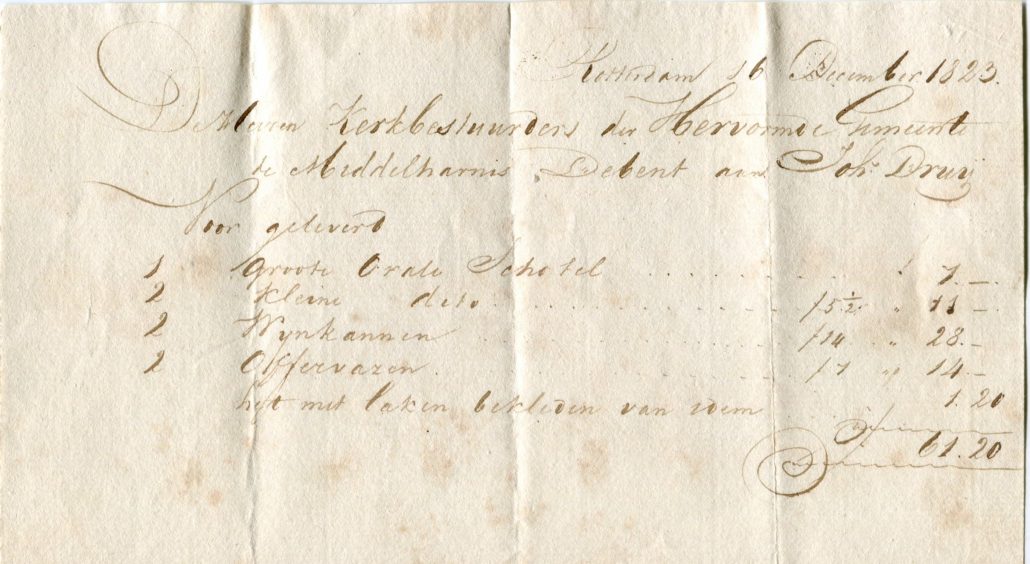 Rotterdam 16 December 1823.
De Heeren Kerkbestuurders der Hervormde Gemeente
te Middelharnis, Debent aan Johs Druij
Voor gelevert
1 Groote Ovale Schotel . . . . . . . . . . . . f 7.—.
2 Kleine deto . . . . . . . . . . . . f 5½ „ 11 —
2 Wynkannen . . . . . . . . . . . . f 14 „ 28.—
2 Offervazen . . . . . . . . . . . . f 7 „ 14.—
met laken bekleden van idem „ 1.20
61.20